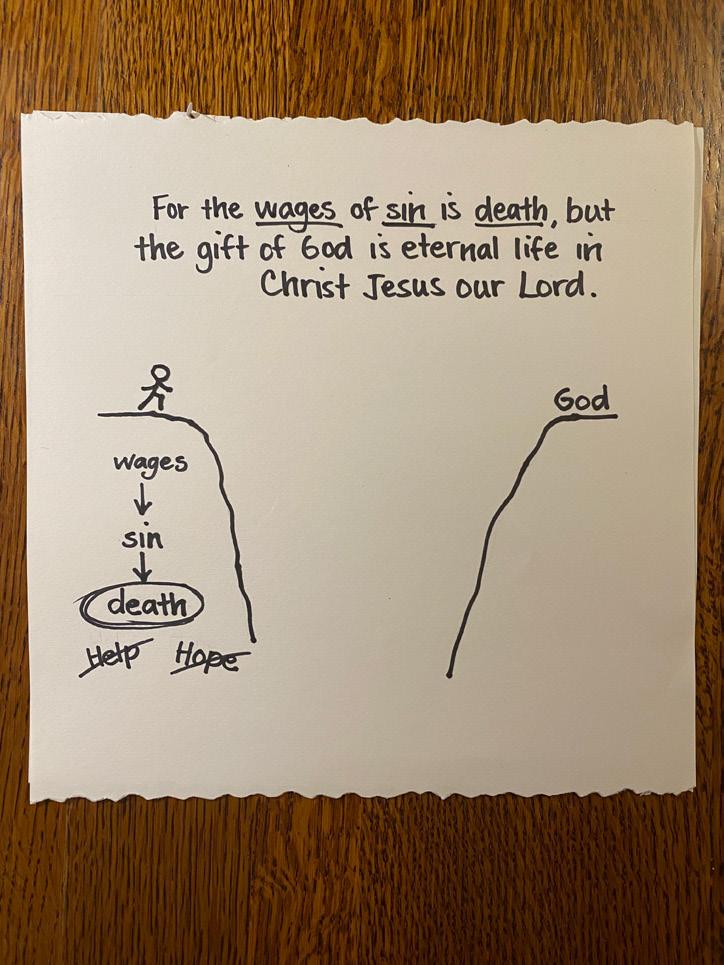 For the wages of sin is death, but
the gift of God is eternal life in
Christ Jesus our Lord.
God
wages
sin
death
Help Hope